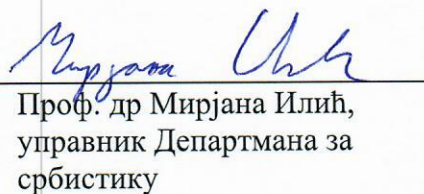 Мирјана Илић
Проф. др Мирјана Илић,
управник Департмана за
србистику